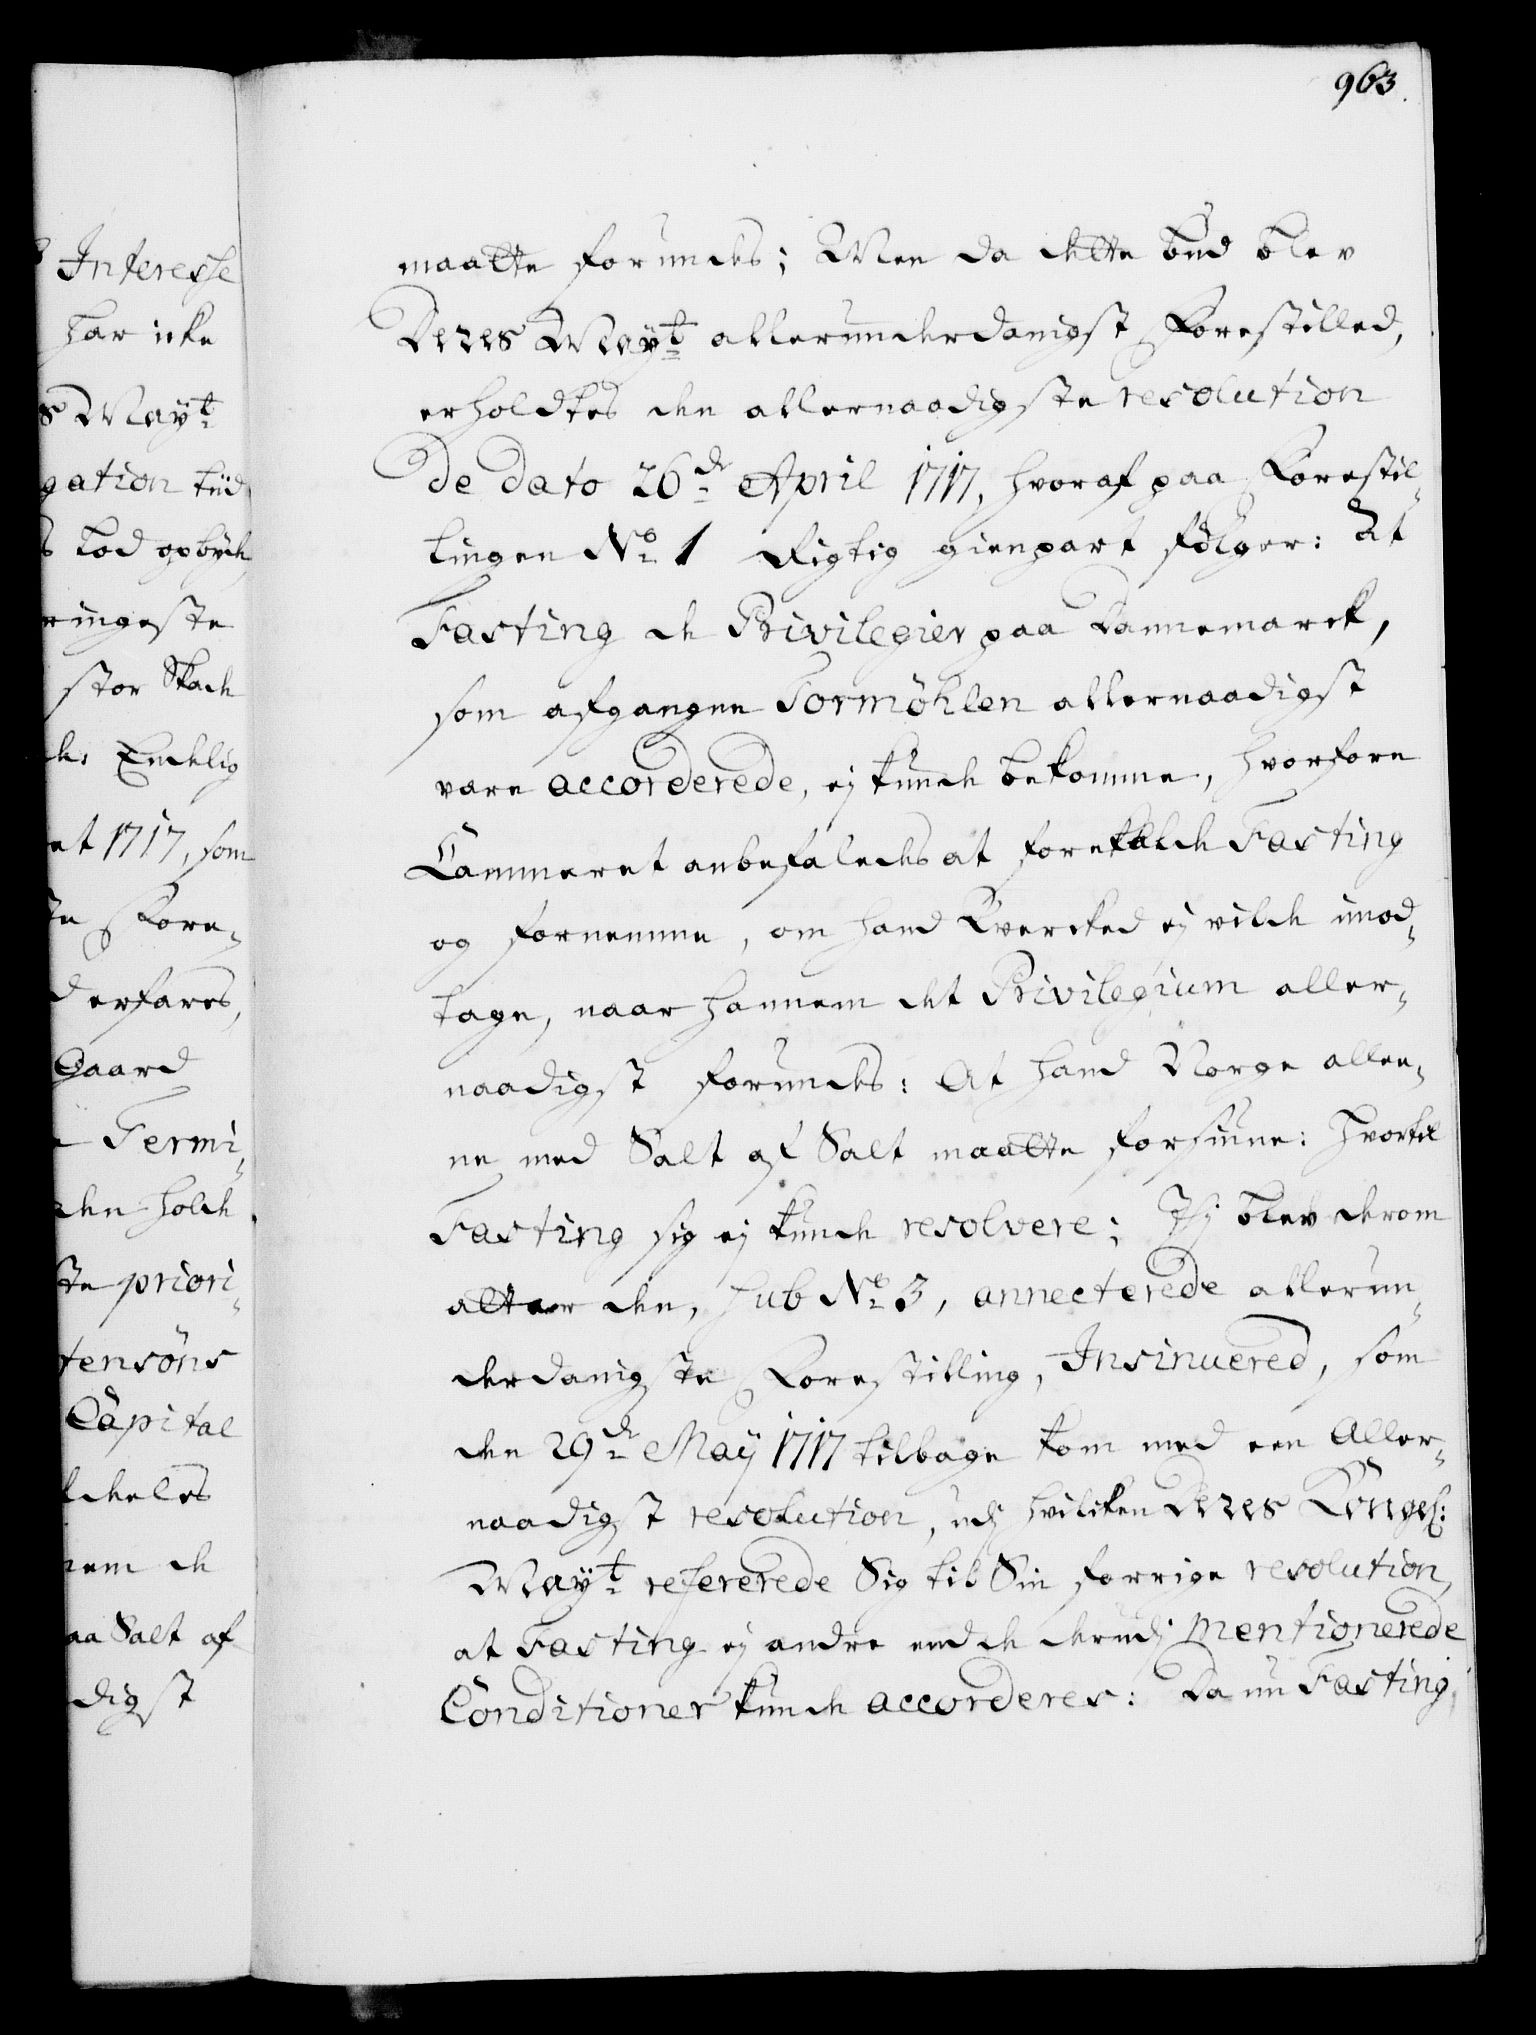 963.
Interesse
har icke
s Mayt
gation tiid
s lod opbyde
ringeste
stor Skade
de. Endelig
et 1717, som
te Fore-
d erfares,
Gaard
Termi-
den holde
te priori-
tensöns
Capital
deeles
nem de
aa Salt af
digst
maatte forundes; Men da dette bud blev
Deres Mayt allerunderdanigst Forestilled,
erholdtes den allernaadigste resolution
De Dato 26de April 1717, hvoraf paa Forestil-
lingen No 1 Rigtig gienpart følger: At
Fasting de Privilegier paa Dannemarck,
som afgangne Tormöhlen allernaadigst
vare accorderede, ej kunde bekomme, hvorfore
Cammeret anbefaledes at forekalde Fasting
og fornemme, om hand Qvercked ej vilde imod-
tage, naar hannem det Privilegium aller-
naadigst forundes: At hand Norge allee-
ne med Salt af Salt maatte forsiune: hvortil
Fasting sig ej kunde resolvere; Thj blev derom
atter den, sub No 3, annecterede allerun-
derdanigste Forestilling, Insinuered, som
den 29de Maij 1717 tilbage kom med een Aller-
naadigst resolution, udj hvilcken Deres Kongel:
Mayt refererede Sig til Sin forrige resolution,
at Fasting ej andre end de derudj mentionerede
Conditioner kunde accorderes: Da nu Fasting,